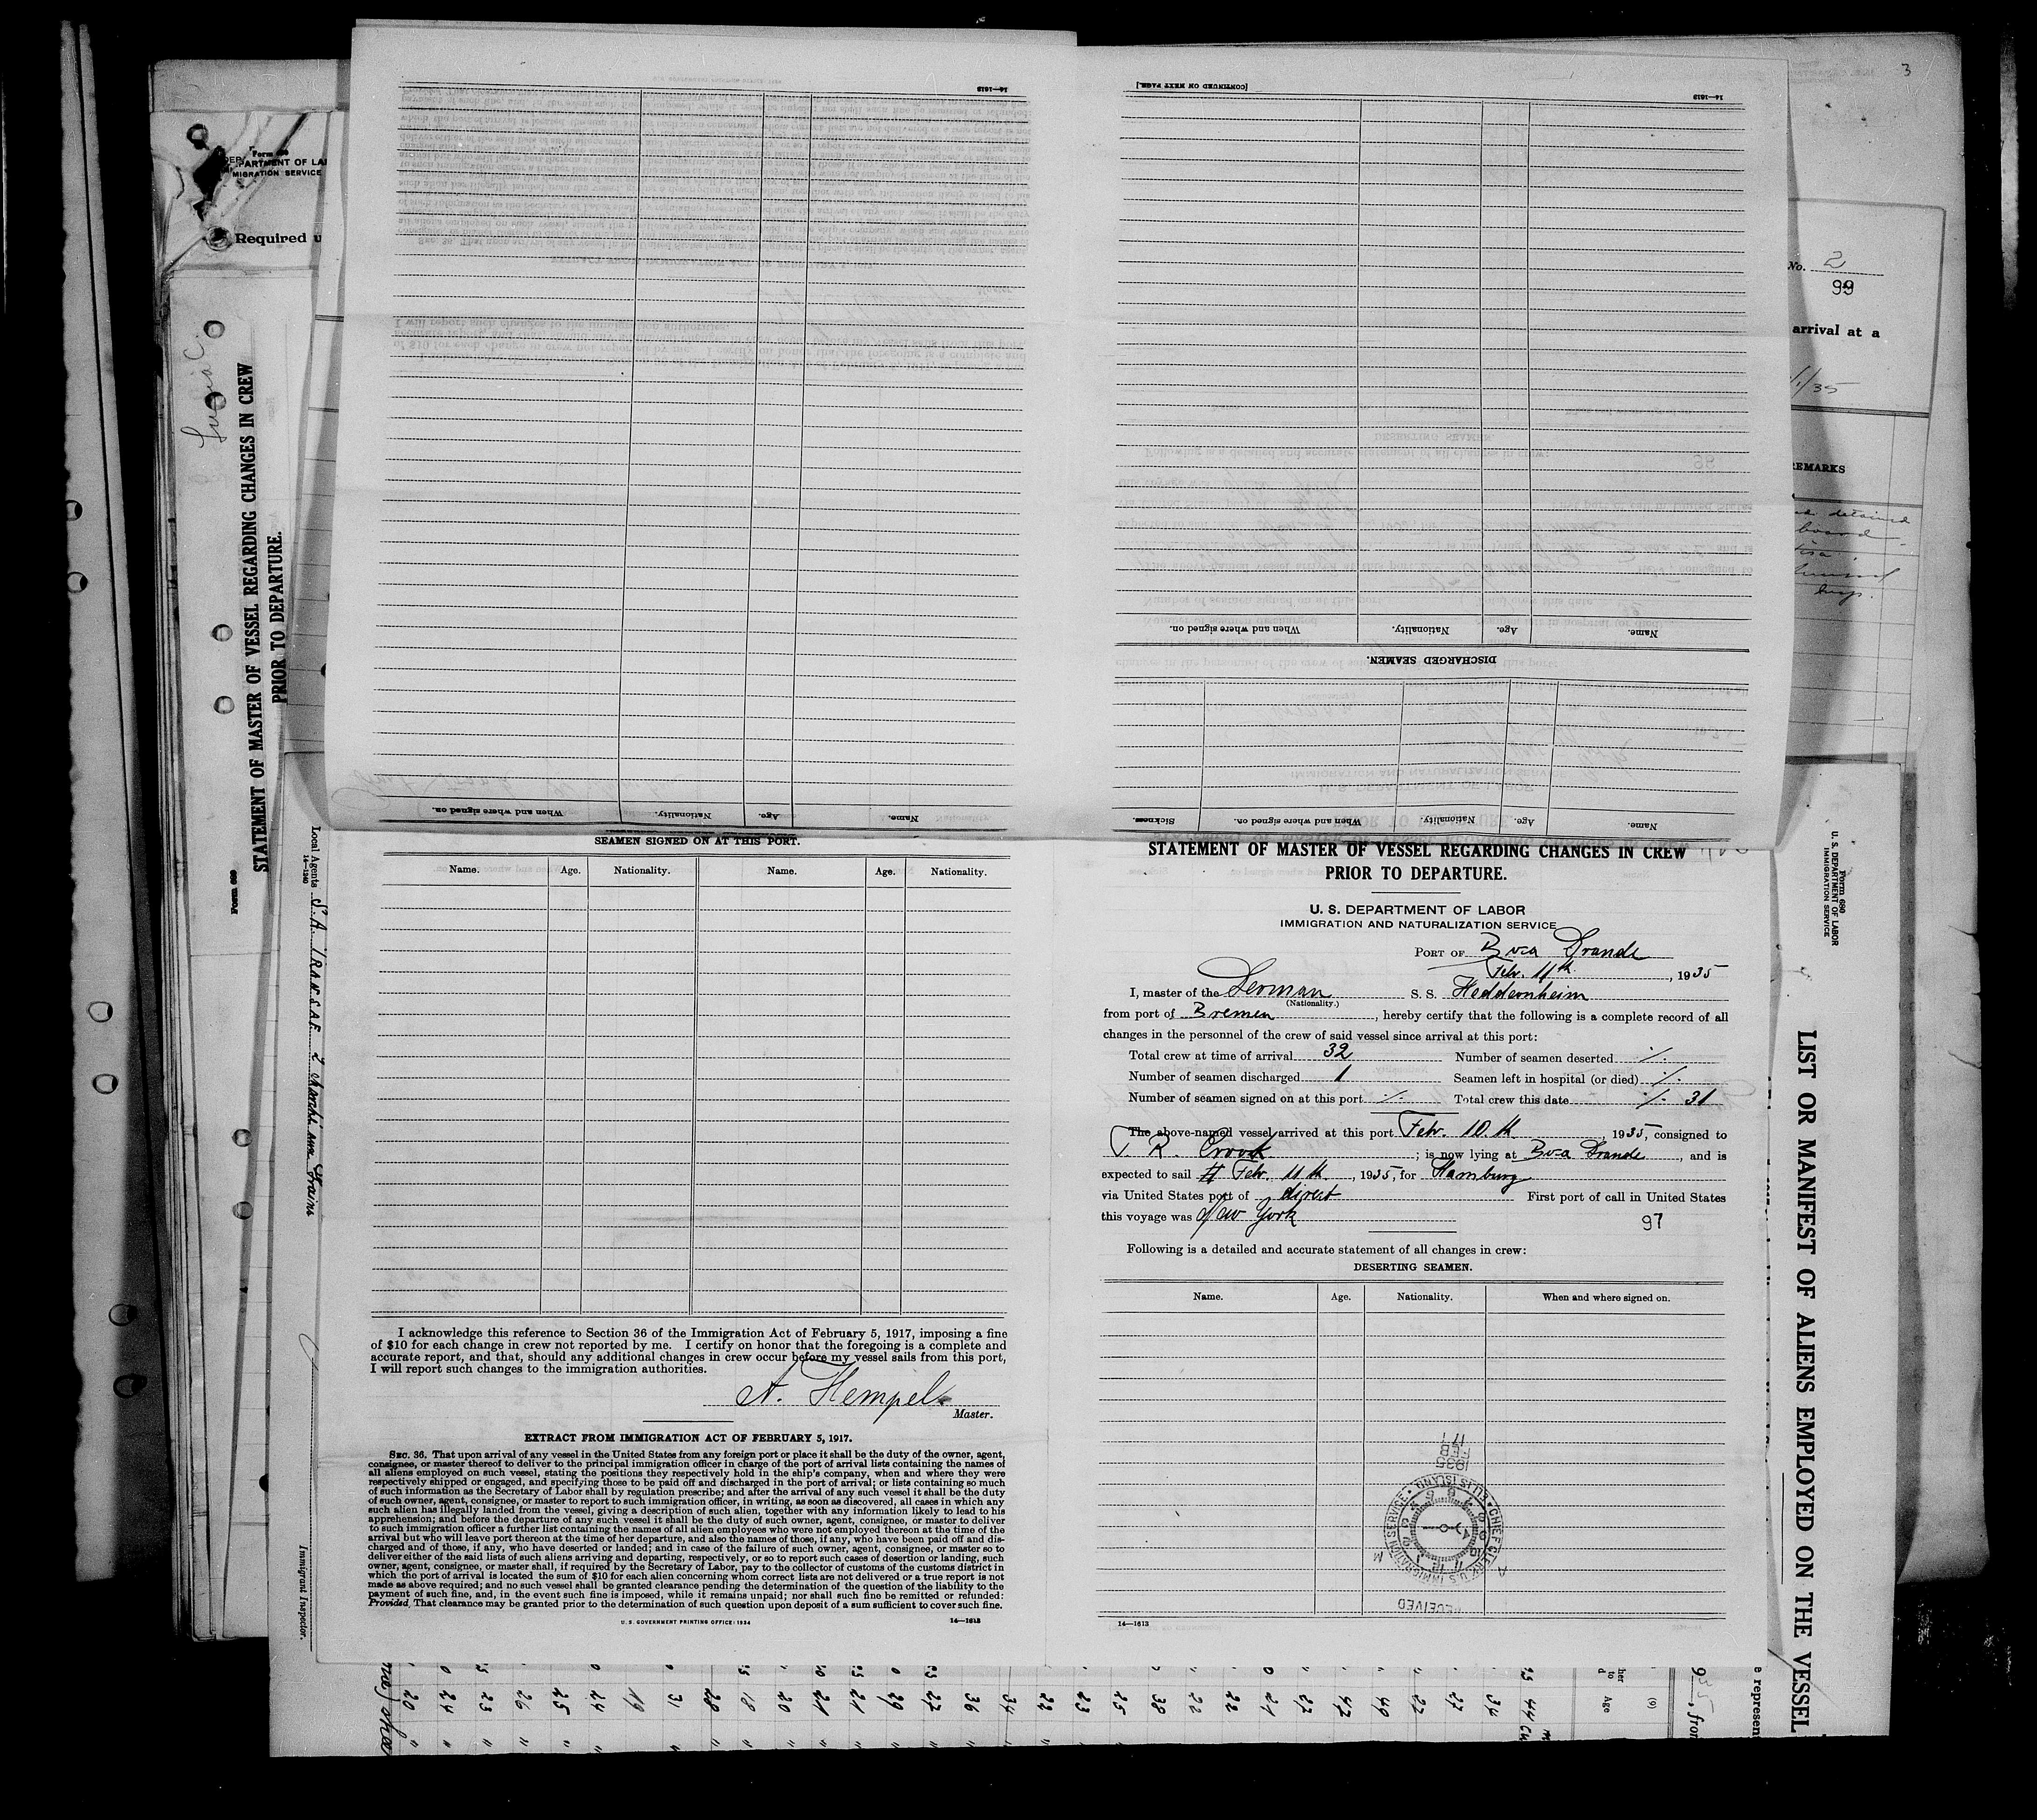 3
14—1613
[CONTINUED ON NEXT PAGE.]
14—1613
Form 680
DEPARTMENT OF LA
MIGRATION SERVICE
Required u
No. 2
99
arrival at a
/1/35
REMARKS
detained
board
visa
STATEMENT OF MASTER OF VESSEL REGARDING CHANGES IN CREW
PRIOR TO DEPARTURE.
Form 689
Name. Age. Nationality. When and where signed on.
DISCHARGED SEAMEN.
Name. Age. Nationality. When and where signed on. Sickness.
Name. Age. Nationality. When and where signed on.
Local Agents S. A. TRANSAF.
14—1240
Immigrant Inspector.
SEAMEN SIGNED ON AT THIS PORT.
Name. Age. Nationality. Name. Age. Nationality.
I acknowledge this reference to Section 36 of the Immigration Act of February 5, 1917, imposing a fine
of $10 for each change in crew not reported by me. I certify on honor that the foregoing is a complete and
accurate report, and that, should any additional changes in crew occur before my vessel sails from this port,
I will report such changes to the immigration authorities.
A. Hempel
Master.
EXTRACT FROM IMMIGRATION ACT OF FEBRUARY 5, 1917.
SEC. 36. That upon arrival of any vessel in the United States from any foreign port or place it shall be the duty of the owner, agent,
consignee, or master thereof to deliver to the principal immigration officer in charge of the port of arrival lists containing the names of
all aliens employed on such vessel, stating the positions they respectively hold in the ship's company, when and where they were
respectively shipped or engaged, and specifying those to be paid off and discharged in the port of arrival; or lists containing so much
of such information as the Secretary of Labor shall by regulation prescribe; and after the arrival of any such vessel it shall be the duty
of such owner, agent, consignee, or master to report to such immigration officer, in writing, as soon as discovered, all cases in which any
such alien has illegally landed from the vessel, giving a description of such alien, together with any information likely to lead to his
apprehension; and before the departure of any such vessel it shall be the duty of such owner, agent, consignee, or master to deliver
to such immigration officer a further list containing the names of all alien employees who were not employed thereon at the time of the
arrival but who will leave port thereon at the time of her departure, and also the names of those, if any, who have been paid off and dis-
charged and of those, if any, who have deserted or landed; and in case of the failure of such owner, agent, consignee, or master so to
deliver either of the said lists of such aliens arriving and departing, respectively, or so to report such cases of desertion or landing, such
owner, agent, consignee, or master shall, if required by the Secretary of Labor, pay to the collector of customs of the customs district in
which the port of arrival is located the sum of $10 for each alien concerning whom correct lists are not delivered or a true report is not
made as above required; and no such vessel shall be granted clearance pending the determination of the question of the liability to the
payment of such fine, and, in the event such fine is imposed, while it remains unpaid; nor shall such fine be remitted or refunded:
Provided, That clearance may be granted prior to the determination of such question upon deposit of a sum sufficient to cover such fine.
U. S. GOVERNMENT PRINTING OFFICE: 1934 14—1613
STATEMENT OF MASTER OF VESSEL REGARDING CHANGES IN CREW
PRIOR TO DEPARTURE.
U. S. DEPARTMENT OF LABOR
IMMIGRATION AND NATURALIZATION SERVICE
PORT OF Boca Grande
Febr. 11th, 1935
I, master of the German S. S. Heddernheim
(Nationality.)
from port of Bremen, hereby certify that the following is a complete record of all
changes in the personnel of the crew of said vessel since arrival at this port:
Total crew at time of arrival 32 Number of seamen deserted ./.
Number of seamen discharged 1 Seamen left in hospital (or died) ./.
Number of seamen signed on at this port ./. Total crew this date ./. 31
The above-named vessel arrived at this port Febr. 10th, 1935, consigned to
T. R. Crook; is now lying at Boca Grande, and is
expected to sail Febr. 11th, 1935, for Hamburg
via United States port of direct First port of call in United States
this voyage was New York
97
Following is a detailed and accurate statement of all changes in crew:
DESERTING SEAMEN.
Name. Age. Nationality. When and where signed on.
RECEIVED
CHIEF CLERK U.S. IMMIGRATION SERVICE • ELLIS ISLAND
A M
1935
FEB
17
14—1613
Form 680
U. S. DEPARTMENT OF LABOR
IMMIGRATION SERVICE
LIST OR MANIFEST OF ALIENS EMPLOYED ON THE VESSEL
e represen
935, from
(9)
Age
20 24 23 26 25 24 19 31 28 18 20 21 21 29 27 36 34 22 23 25 38 22 22 21 27 47 49 22 27 34 44